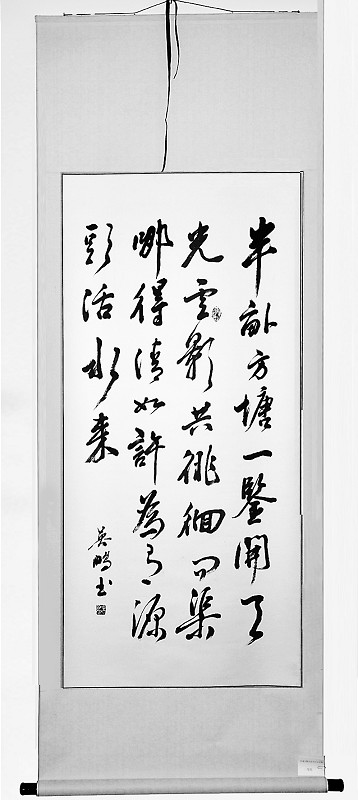 半畝方塘一鑒開天
光雲影共徘徊问渠
哪得清如許為有源
頭活水來
鵬书